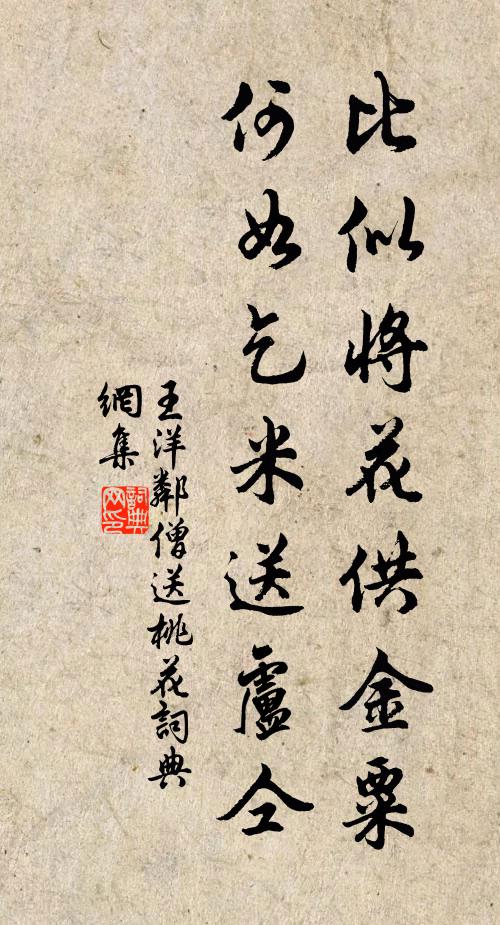 比似將花供金粟
何如乞米送盧仝
王洋鄰僧送桃花詞典
網集
詞典
网印